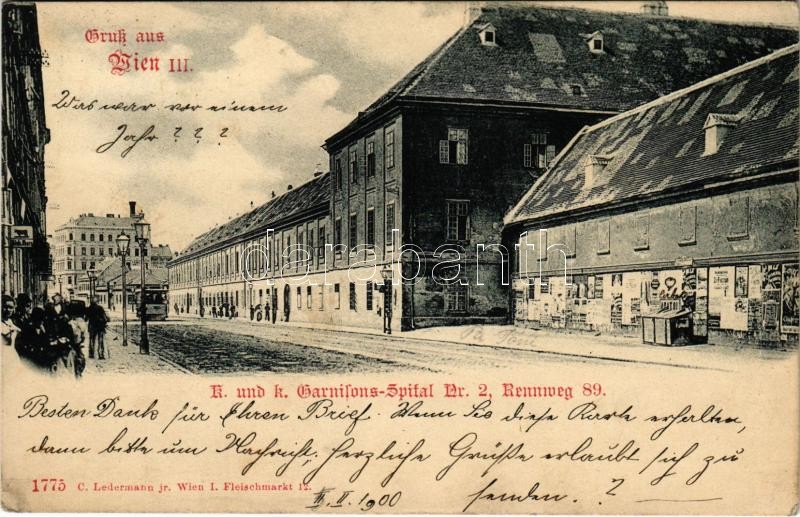 Gruß aus
Wien III.
Was war vor einem
Jahr ? ? ?
darabanth
K. und k. Garnisons-Spital Nr. 2, Rennweg 89.
Besten Dank für Ihren Brief. Wenn Sie diese Karte erhalten,
dann bitte um Nachricht; herzliche Grüße erlaubt sich zu
1775 C. Ledermann jr. Wien I. Fleischmarkt 12.
II. 1900 senden. ?